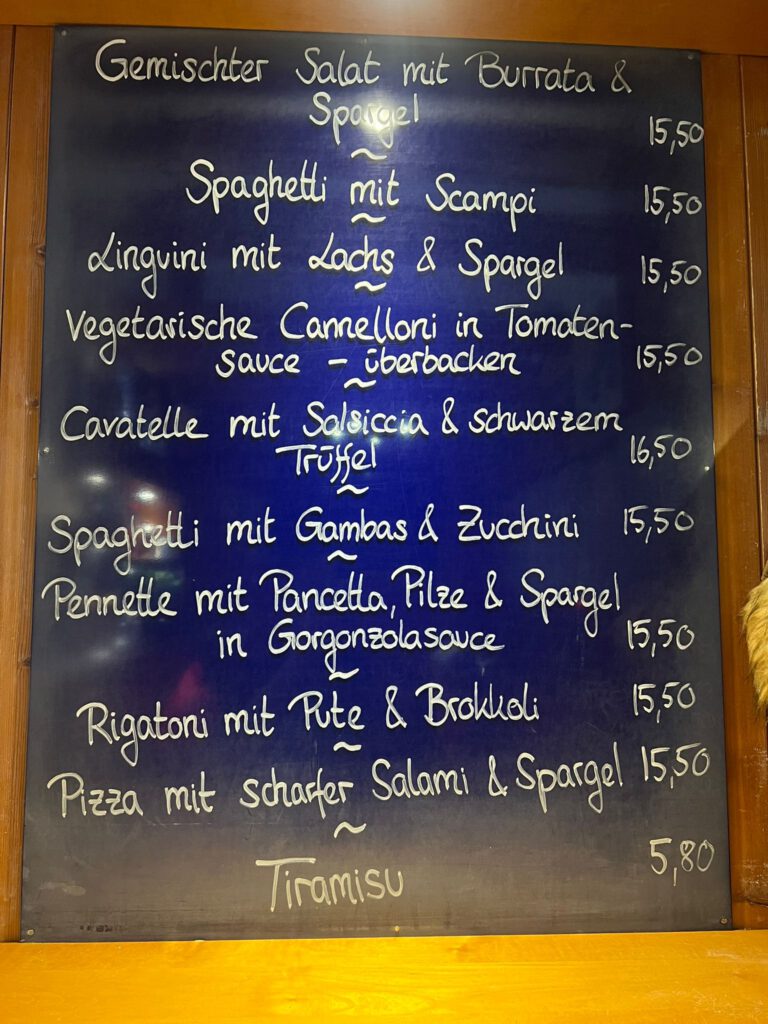 Gemischter Salat mit Burrata &
Spargel 15,50
~
Spaghetti mit Scampi 15,50
~
Linguini mit Lachs & Spargel 15,50
~
Vegetarische Cannelloni in Tomaten-
sauce - überbacken 15,50
~
Cavatelle mit Salsiccia & schwarzem
Trüffel 16,50
~
Spaghetti mit Gambas & Zucchini 15,50
~
Pennette mit Pancetta, Pilze & Spargel
in Gorgonzolasauce 15,50
~
Rigatoni mit Pute & Brokkoli 15,50
~
Pizza mit scharfer Salami & Spargel 15,50
~
Tiramisu 5,80